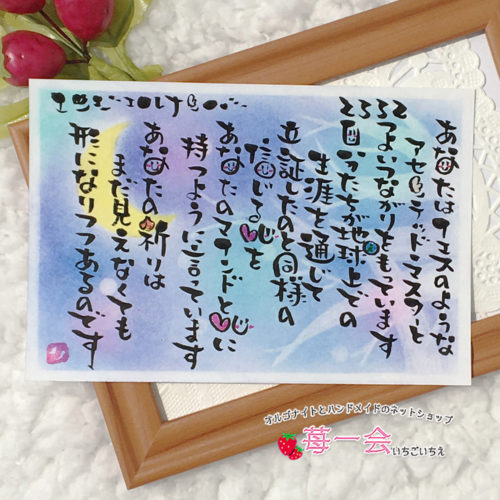 あなたはイエスのような
アセンデッド・マスターと
つよいつながりをもています
たちが地球上での
生涯を通じて
立証したのと同様の
信じる心を
あなたのマインドと心に
持つように言っています
あなたの祈りは
まだ見えなくても
形になりつつあるのです
オルゴナイトとハンドメイドのネットショップ
苺一会 いちごいちえ